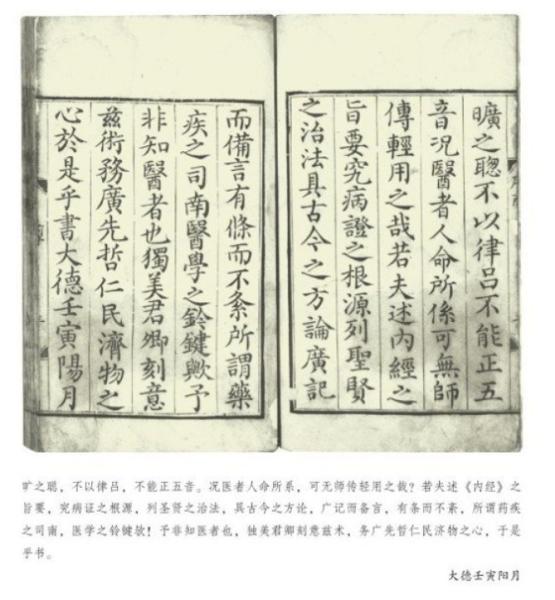 曠之聰不以律呂不能正五
音況醫者人命所係可無師
傳輕用之哉若夫述內經之
旨要究病證之根源列聖賢
之治法具古今之方論廣記
而備言有條而不紊所謂藥
疾之司南醫學之鈴鍵歟予
非知醫者也獨美君卿刻意
茲術務廣先哲仁民濟物之
心於是乎書大德壬寅陽月
旷之聪，不以律吕，不能正五音。况医者人命所系，可无师传轻用之哉？若夫述《内经》之
旨要，究病证之根源，列圣贤之治法，具古今之方论，广记而备言，有条而不紊，所谓药疾
之司南，医学之铃键欤！予非知医者也，独美君卿刻意兹术，务广先哲仁民济物之心，于是
乎书。
大德壬寅阳月